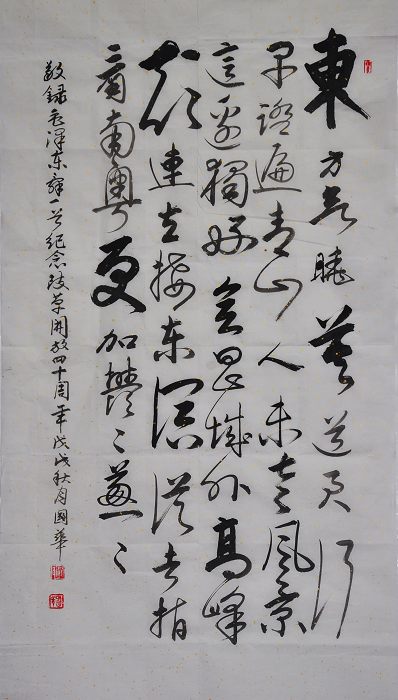 東方欲曉莫道君行
早踏遍青山人未老風景
這邊獨好會昌城外高峰
顛連直接東溟戰士指
看南粵更加欝〻蔥〻
敬録毛澤東辭一首紀念改革開放四十周年戊戌秋月國華